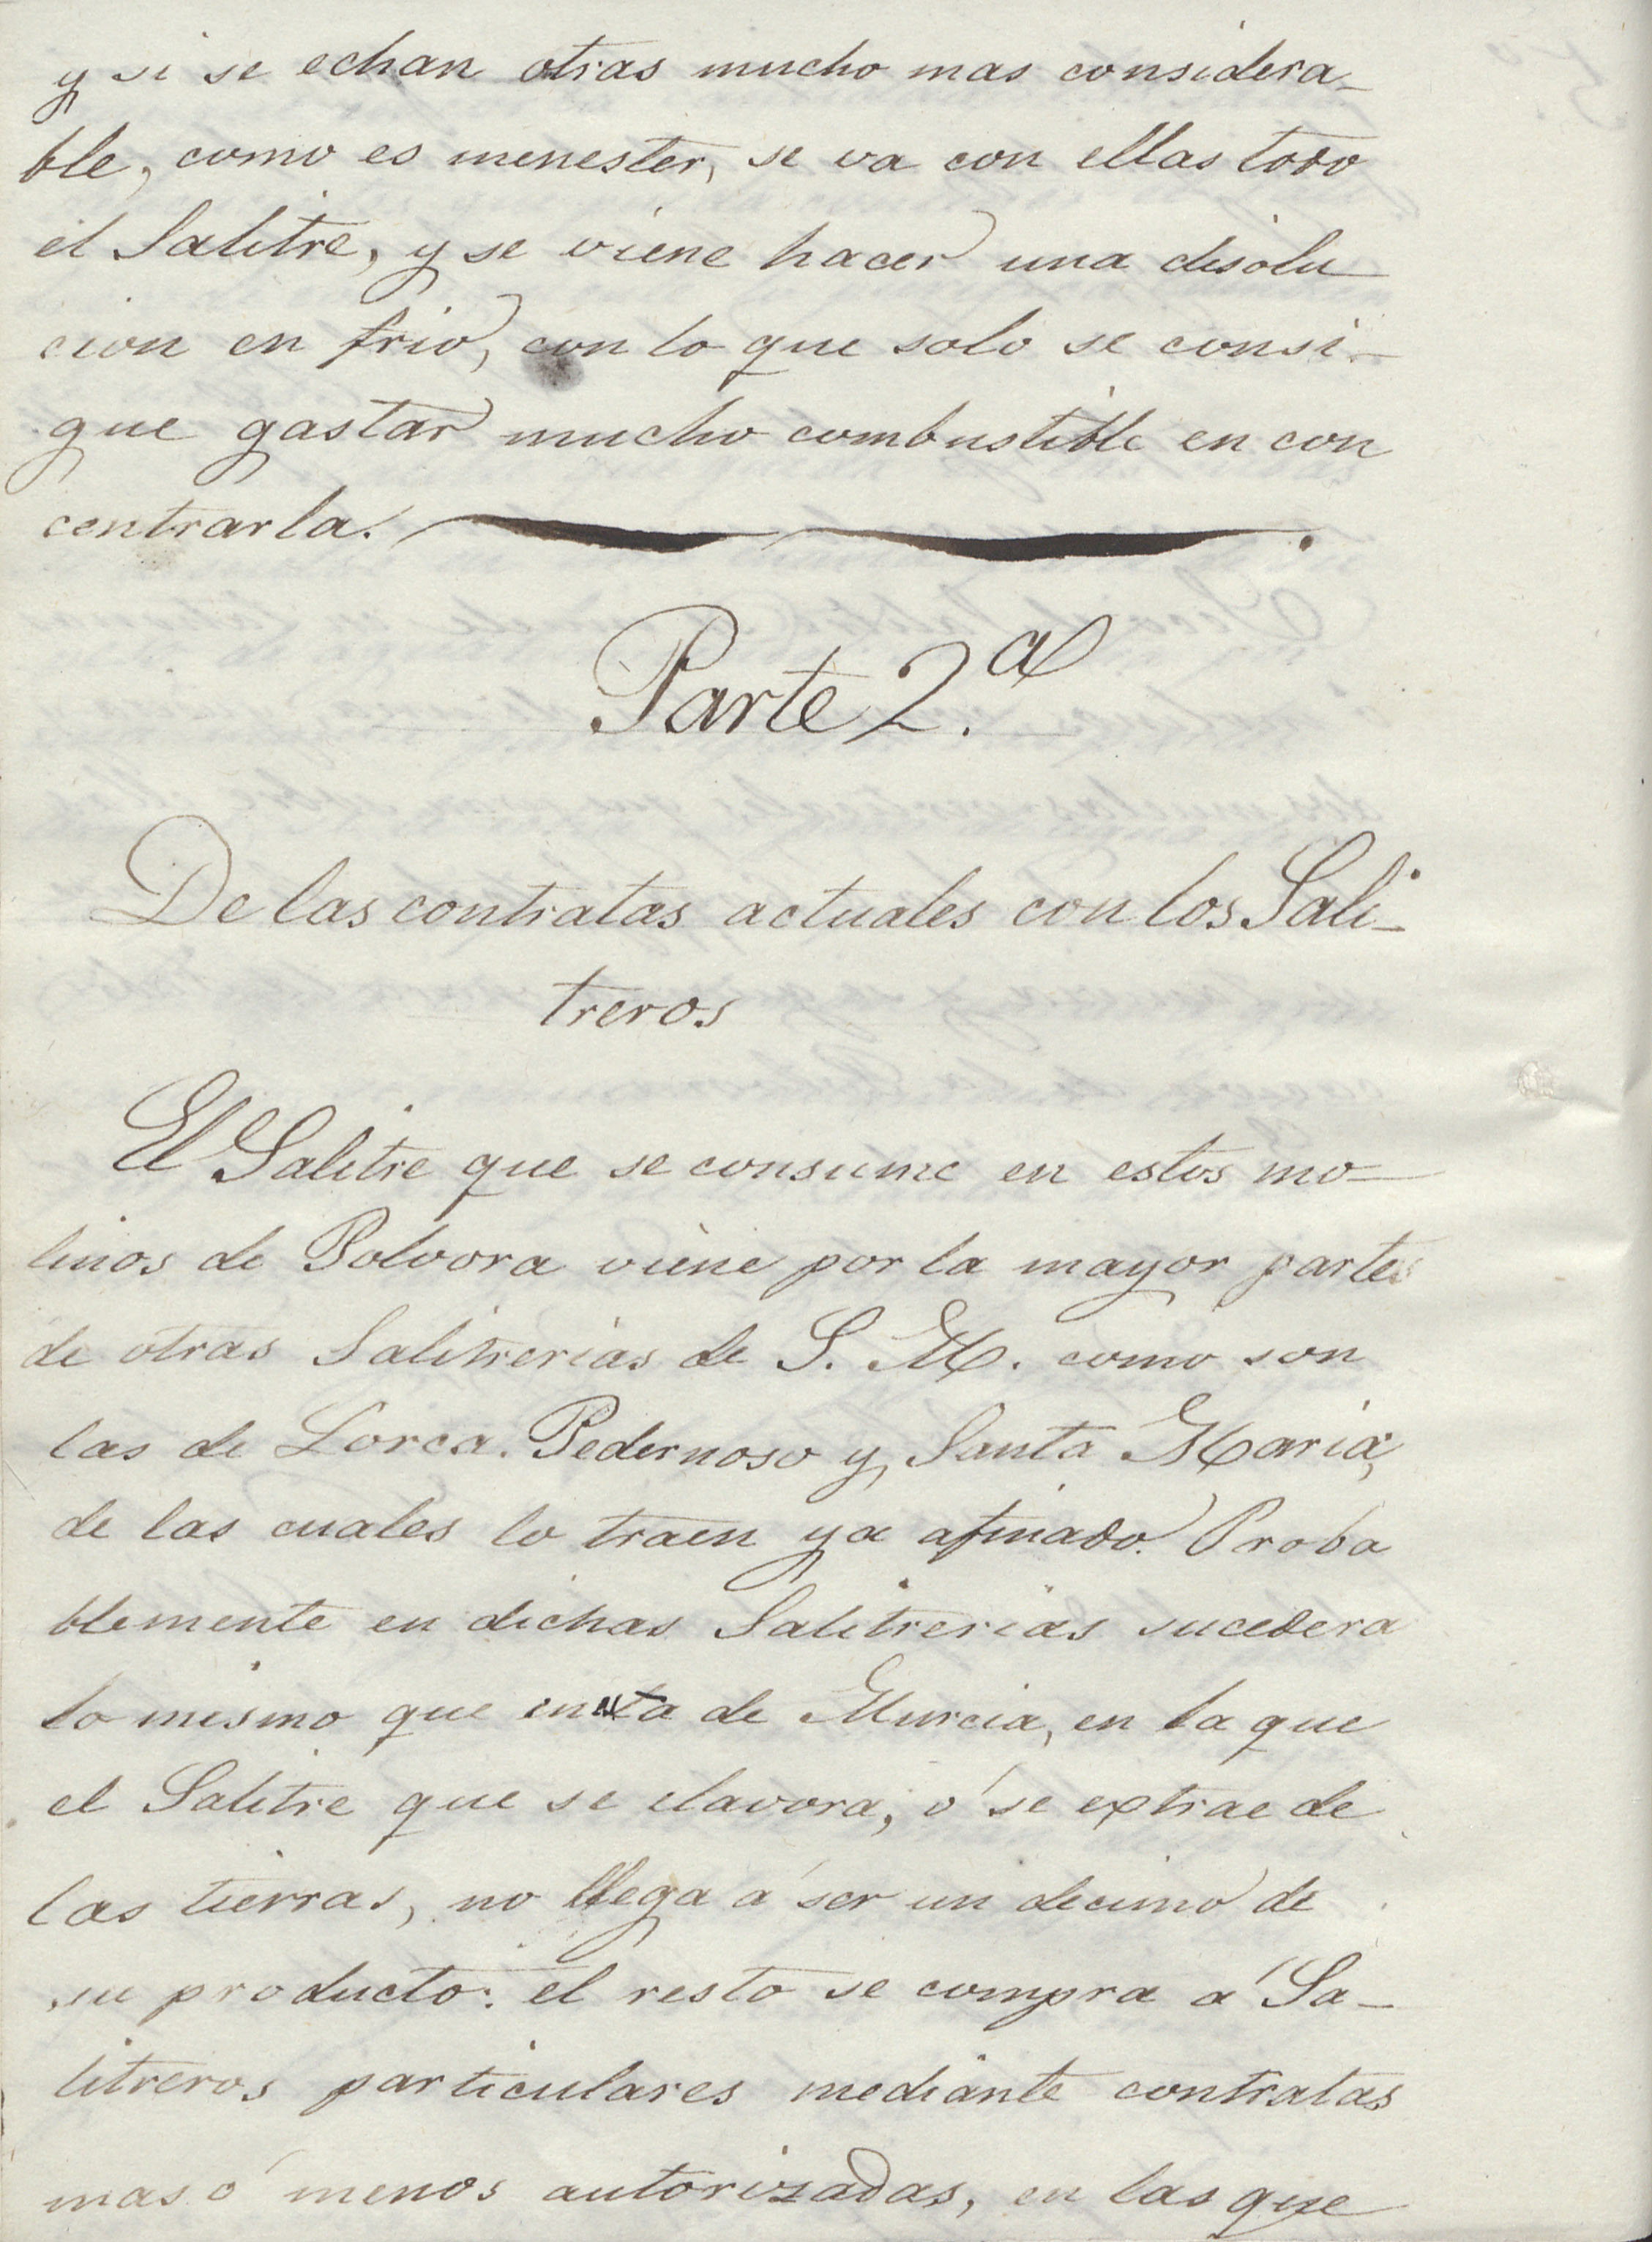 y si se echan otras mucho mas considera-
ble, como es menester, se va con ellas todo
el Salitre, y se viene hacer una disolu
cion en frio, con lo que solo se consi-
gue gastar mucho combustible en con
centrarla.
Parte 2.a
De las contratas actuales con los Sali-
treros
El Salitre que se consume en estos mo-
linos de Polvora viene por la mayor parte
de otras Salitrerias de S. M. como son
las de Lorca. Pedernoso y Santa Maria,
de las cuales lo traen ya afinado. Proba
blemente en dichas Salitrerias sucedera
lo mismo que en esta de Murcia, en la que
el Salitre que se elavora, ó se extrae de
las tierras, no llega á ser un decimo de
su producto: el resto se compra á Sa-
litreros particulares mediante contratas
mas ó menos autorizadas, en las que